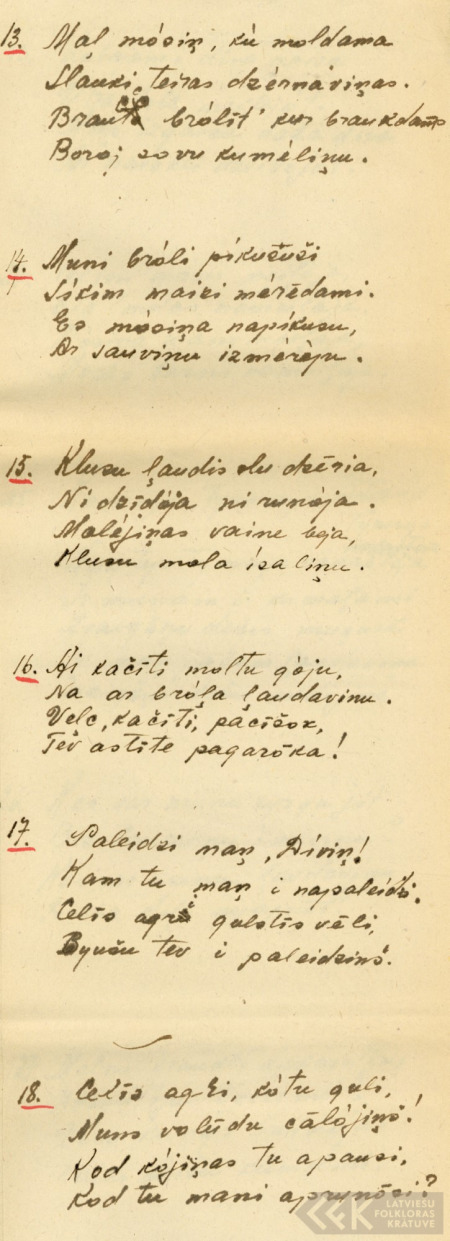 13. Mal mósiņ, kù moldama
Slauki teiras dzérnàviņas.
Brauc brólít' kur braukdams
Boroj sovu kuméliņu.
14. Muni bróli píkušuši
Síkim maizi mérēdami.
Es mósiņa napíkusu,
Ar sauviņu izmérèju.
15. Klusu ļaudis olu dzēria,
Ni dzídója ni runòja.
Malèjiņas vaine beja,
Klusu mola ísaliņu.
16. Ai kačíti moltu gòju,
Na ar bróļa ļaudaviņu.
Velc, kačíti, pacíšok,
Tev astíte pagaròka!
17. Paleidzi maņ, Díviņ!
Kam tu maņ i napaleidzi.
Celís agri gulstís vēli,
Byušu tev i paleidzinš.
18. Celís agri, kò tu guli,
Muns volūdu cālòjiņš!
Kod kòjiņas tu apausi,
Kod tu mani aprunōsi?
LATVIEŠU
FOLKLORAS
KRĀTUVE